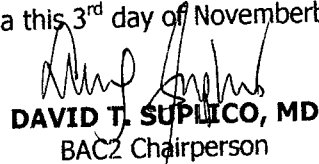 a this 3rd day of November
DAVID T. SUPLICO, MD
BAC2 Chairperson